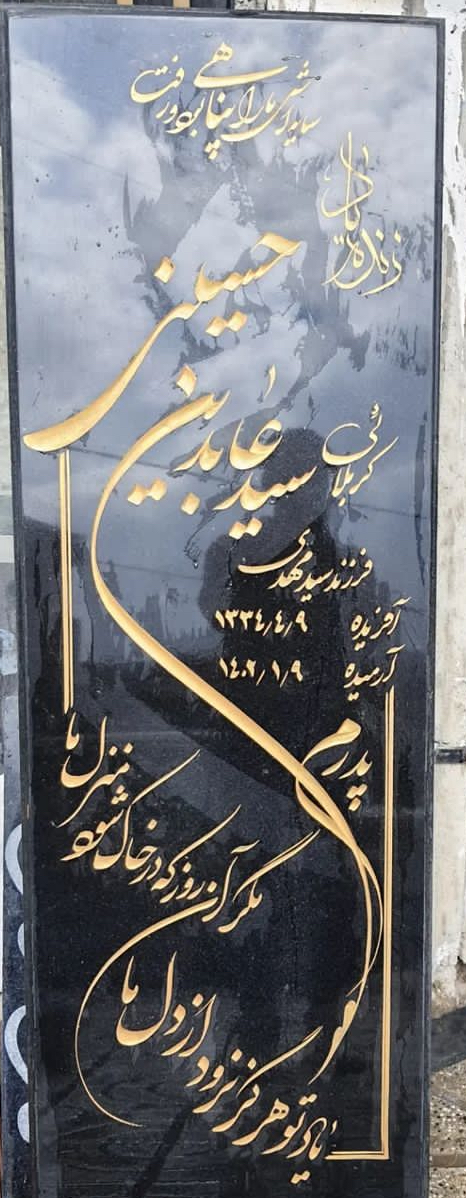 سایه اش ما را پناهی بود و رفت
زنده یاد
کربلائی سید عابدین حسینی
فرزند سید مهدی
آفریده ۱۳۳٤/٤/۹
آرمیده ۱٤۰۲/۱/۹
پدرم
مگر آن روز که در خاک شود منزل ما
یاد تو هرگز نرود از دل ما